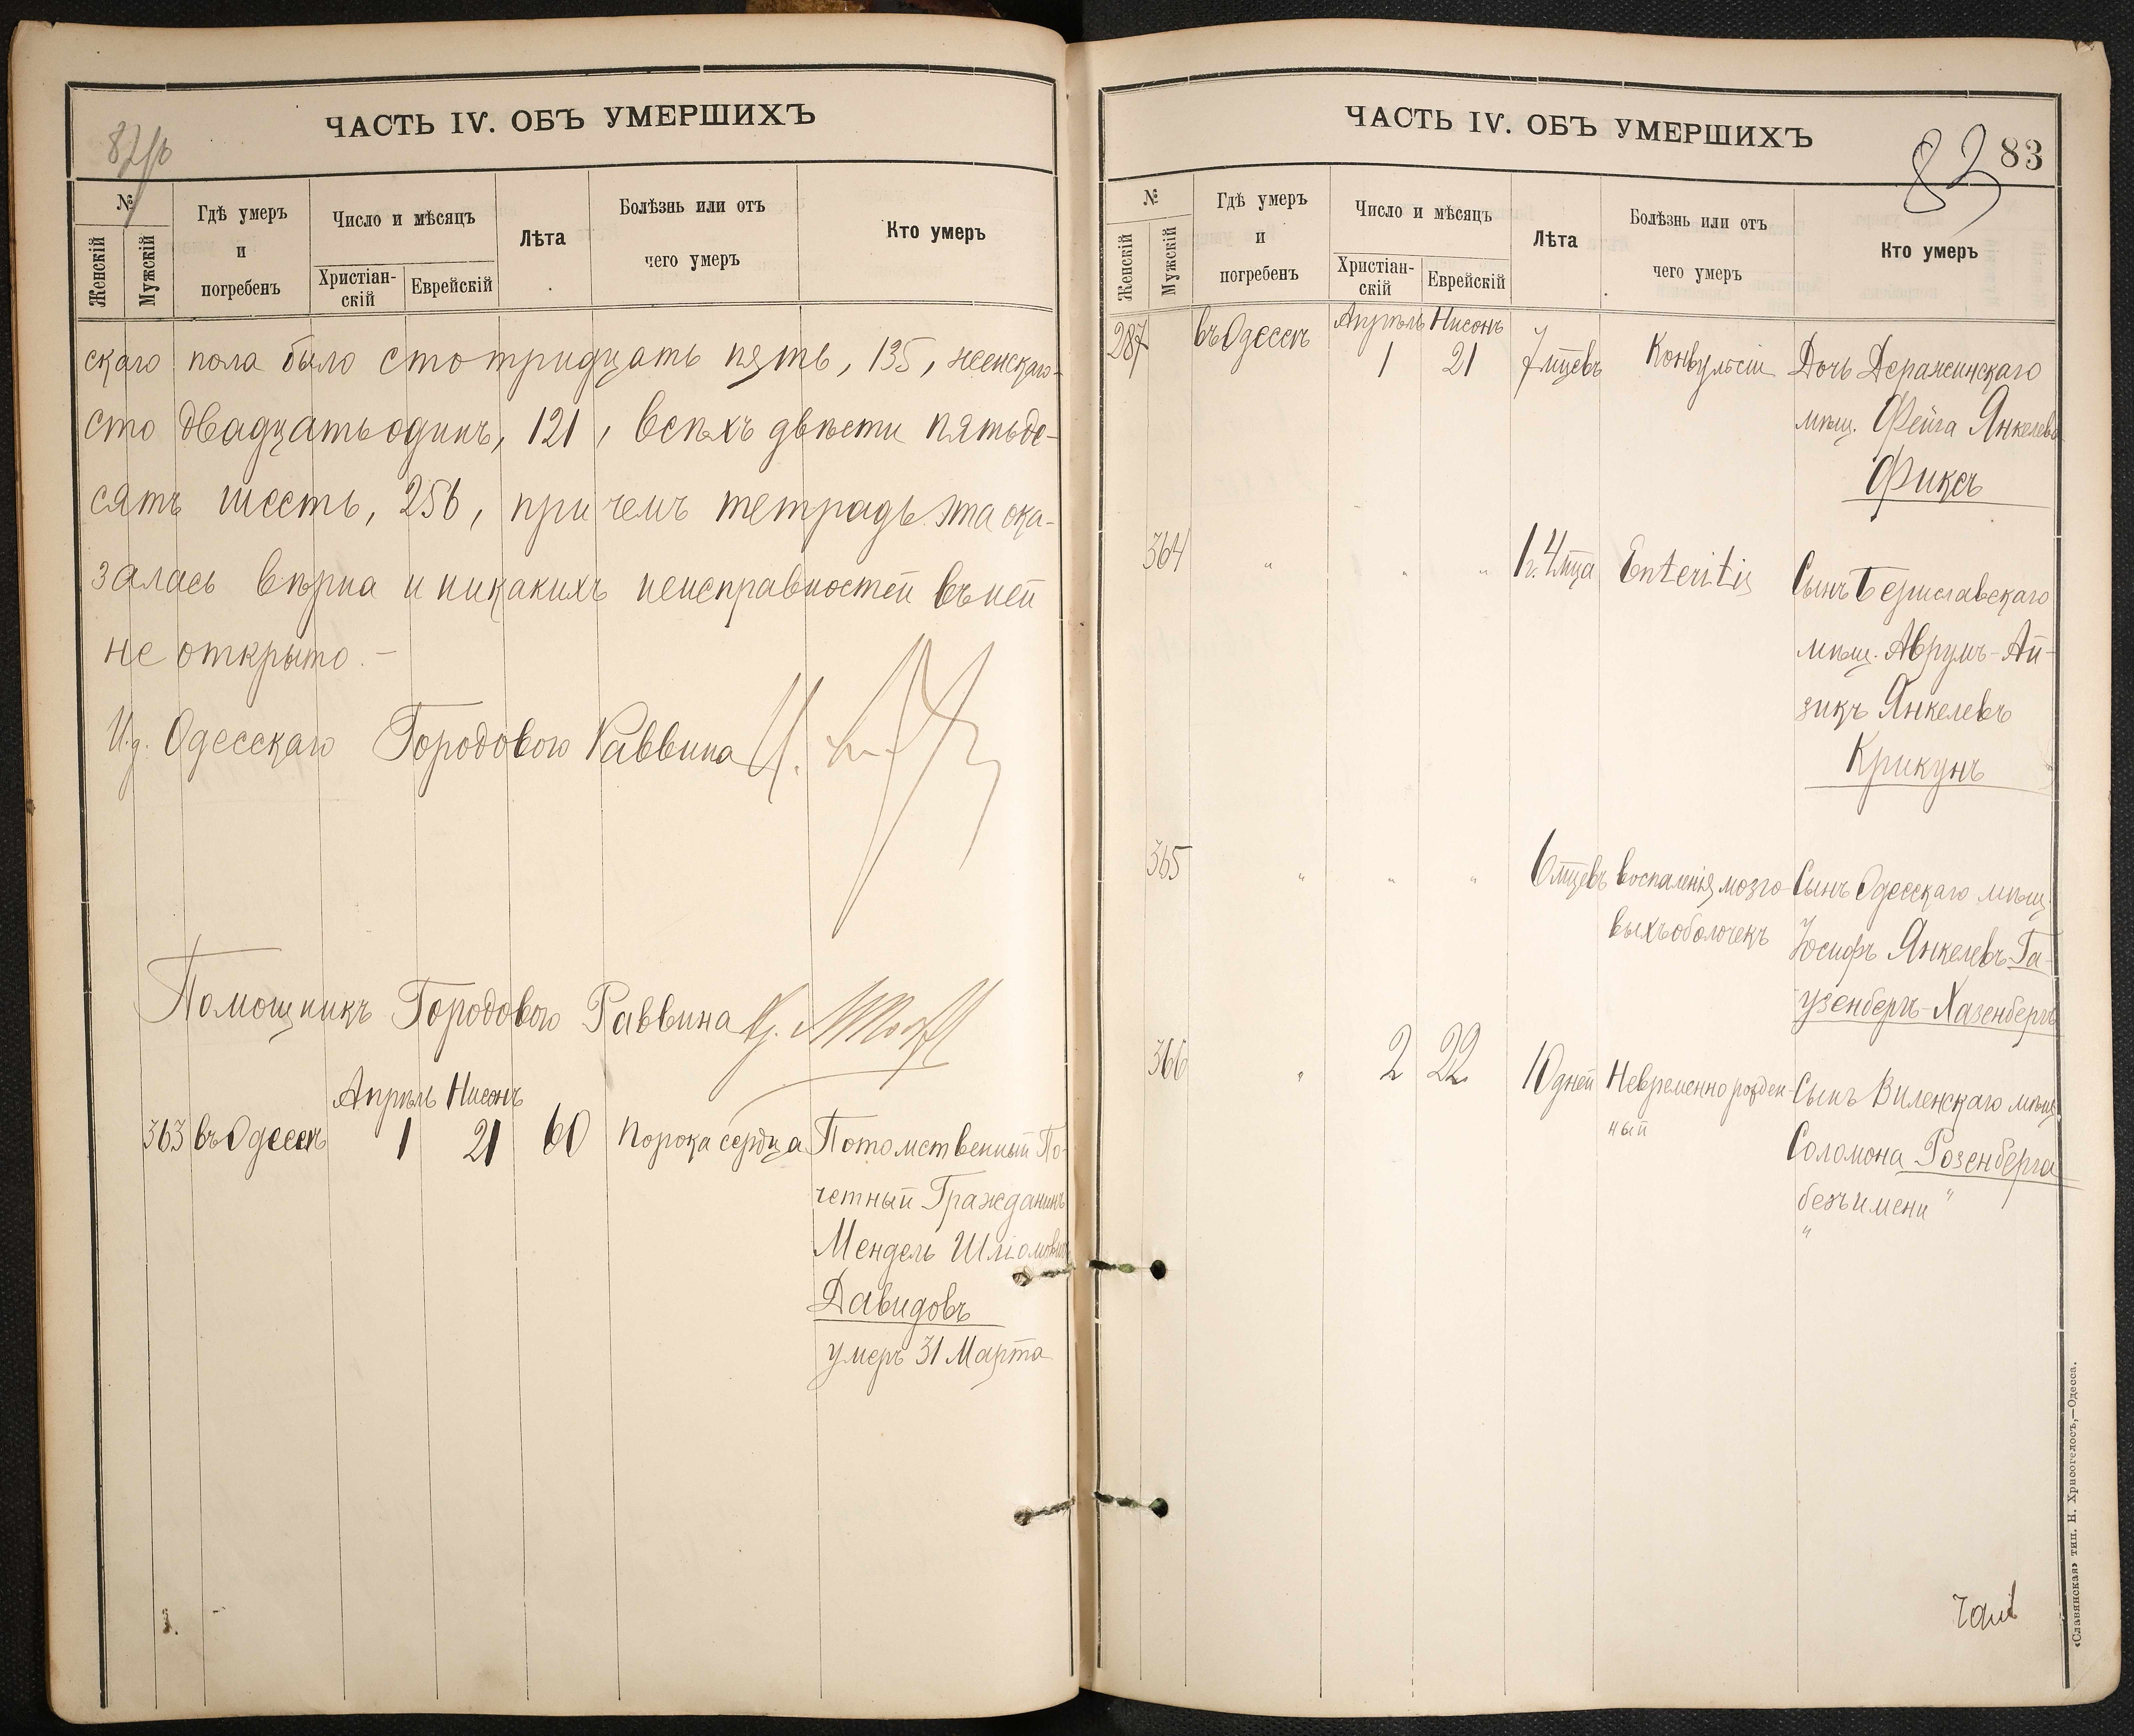 ЧАСТЬ IV. ОБЪ УМЕРШИХЪ
82
№
Женскій
Мужскій
Гдѣ умеръ
и
погребенъ
Число и мѣсяцъ
Христіан-
скій
Еврейскій
Лѣта
Болѣзнь или отъ
чего умеръ
Кто умеръ
скаго пола было сто тридцать пять, 135, женскаго-
сто двадцать одинъ, 121, всѣхъ двѣсти пятьде-
сятъ шесть, 256, при чемъ тетрадь эта ока-
залась вѣрна и никакихъ неисправностей въ ней
не открыто.-
И.д. Одесскаго Городового Раввина
Помощникъ Городового Раввина
Апрѣль Нисонъ
363 въ Одессѣ 1 21 60 Порока сердца Потомственный По-
четный Гражданинъ
Мендель Шліомовичъ
Давидовъ
умеръ 31 Марта
ЧАСТЬ IV. ОБЪ УМЕРШИХЪ
83 83
№
Женскій
Мужскій
Гдѣ умеръ
и
погребенъ
Число и мѣсяцъ
Христіан-
скій
Еврейскій
Лѣта
Болѣзнь или отъ
чего умеръ
Кто умеръ
Апрѣль Нисонъ
287 въ Одессѣ 1 21 7 мцевъ Конвульсіи Дочь Деражинскаго
мѣщ. Фейга Янкелева
Фиксъ
364 " " " 1 г. 4 мца Enteritis Сынъ Бериславскаго
мѣщ. Аврумъ-Ай-
зикъ Янкелевъ
Крикунъ
365 " " " 6 мцевъ воспаленія мозго- Сынъ Одесскаго мѣщ.
выхъ оболочекъ Іосифъ Янкелевъ Га-
узенбергъ-Хазенбергъ
366 " 2 22 10 дней Невременно рожден- Сынъ Виленскаго мѣщ.
ный Соломона Розенберга
безъ имени "
"
«Славянская» тип. Н. Хрисогелосъ,—Одесса.